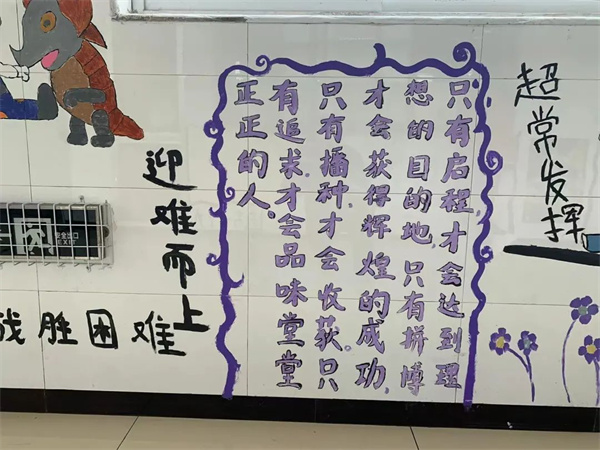 超常发挥
只有启程,才会达到理
想的目的地,只有拼搏
才会获得辉煌的成功,
只有播种,才会收获,只
有追求,才会品味堂堂
正正的人。
迎难而上
战胜困难
安全出口
EXIT